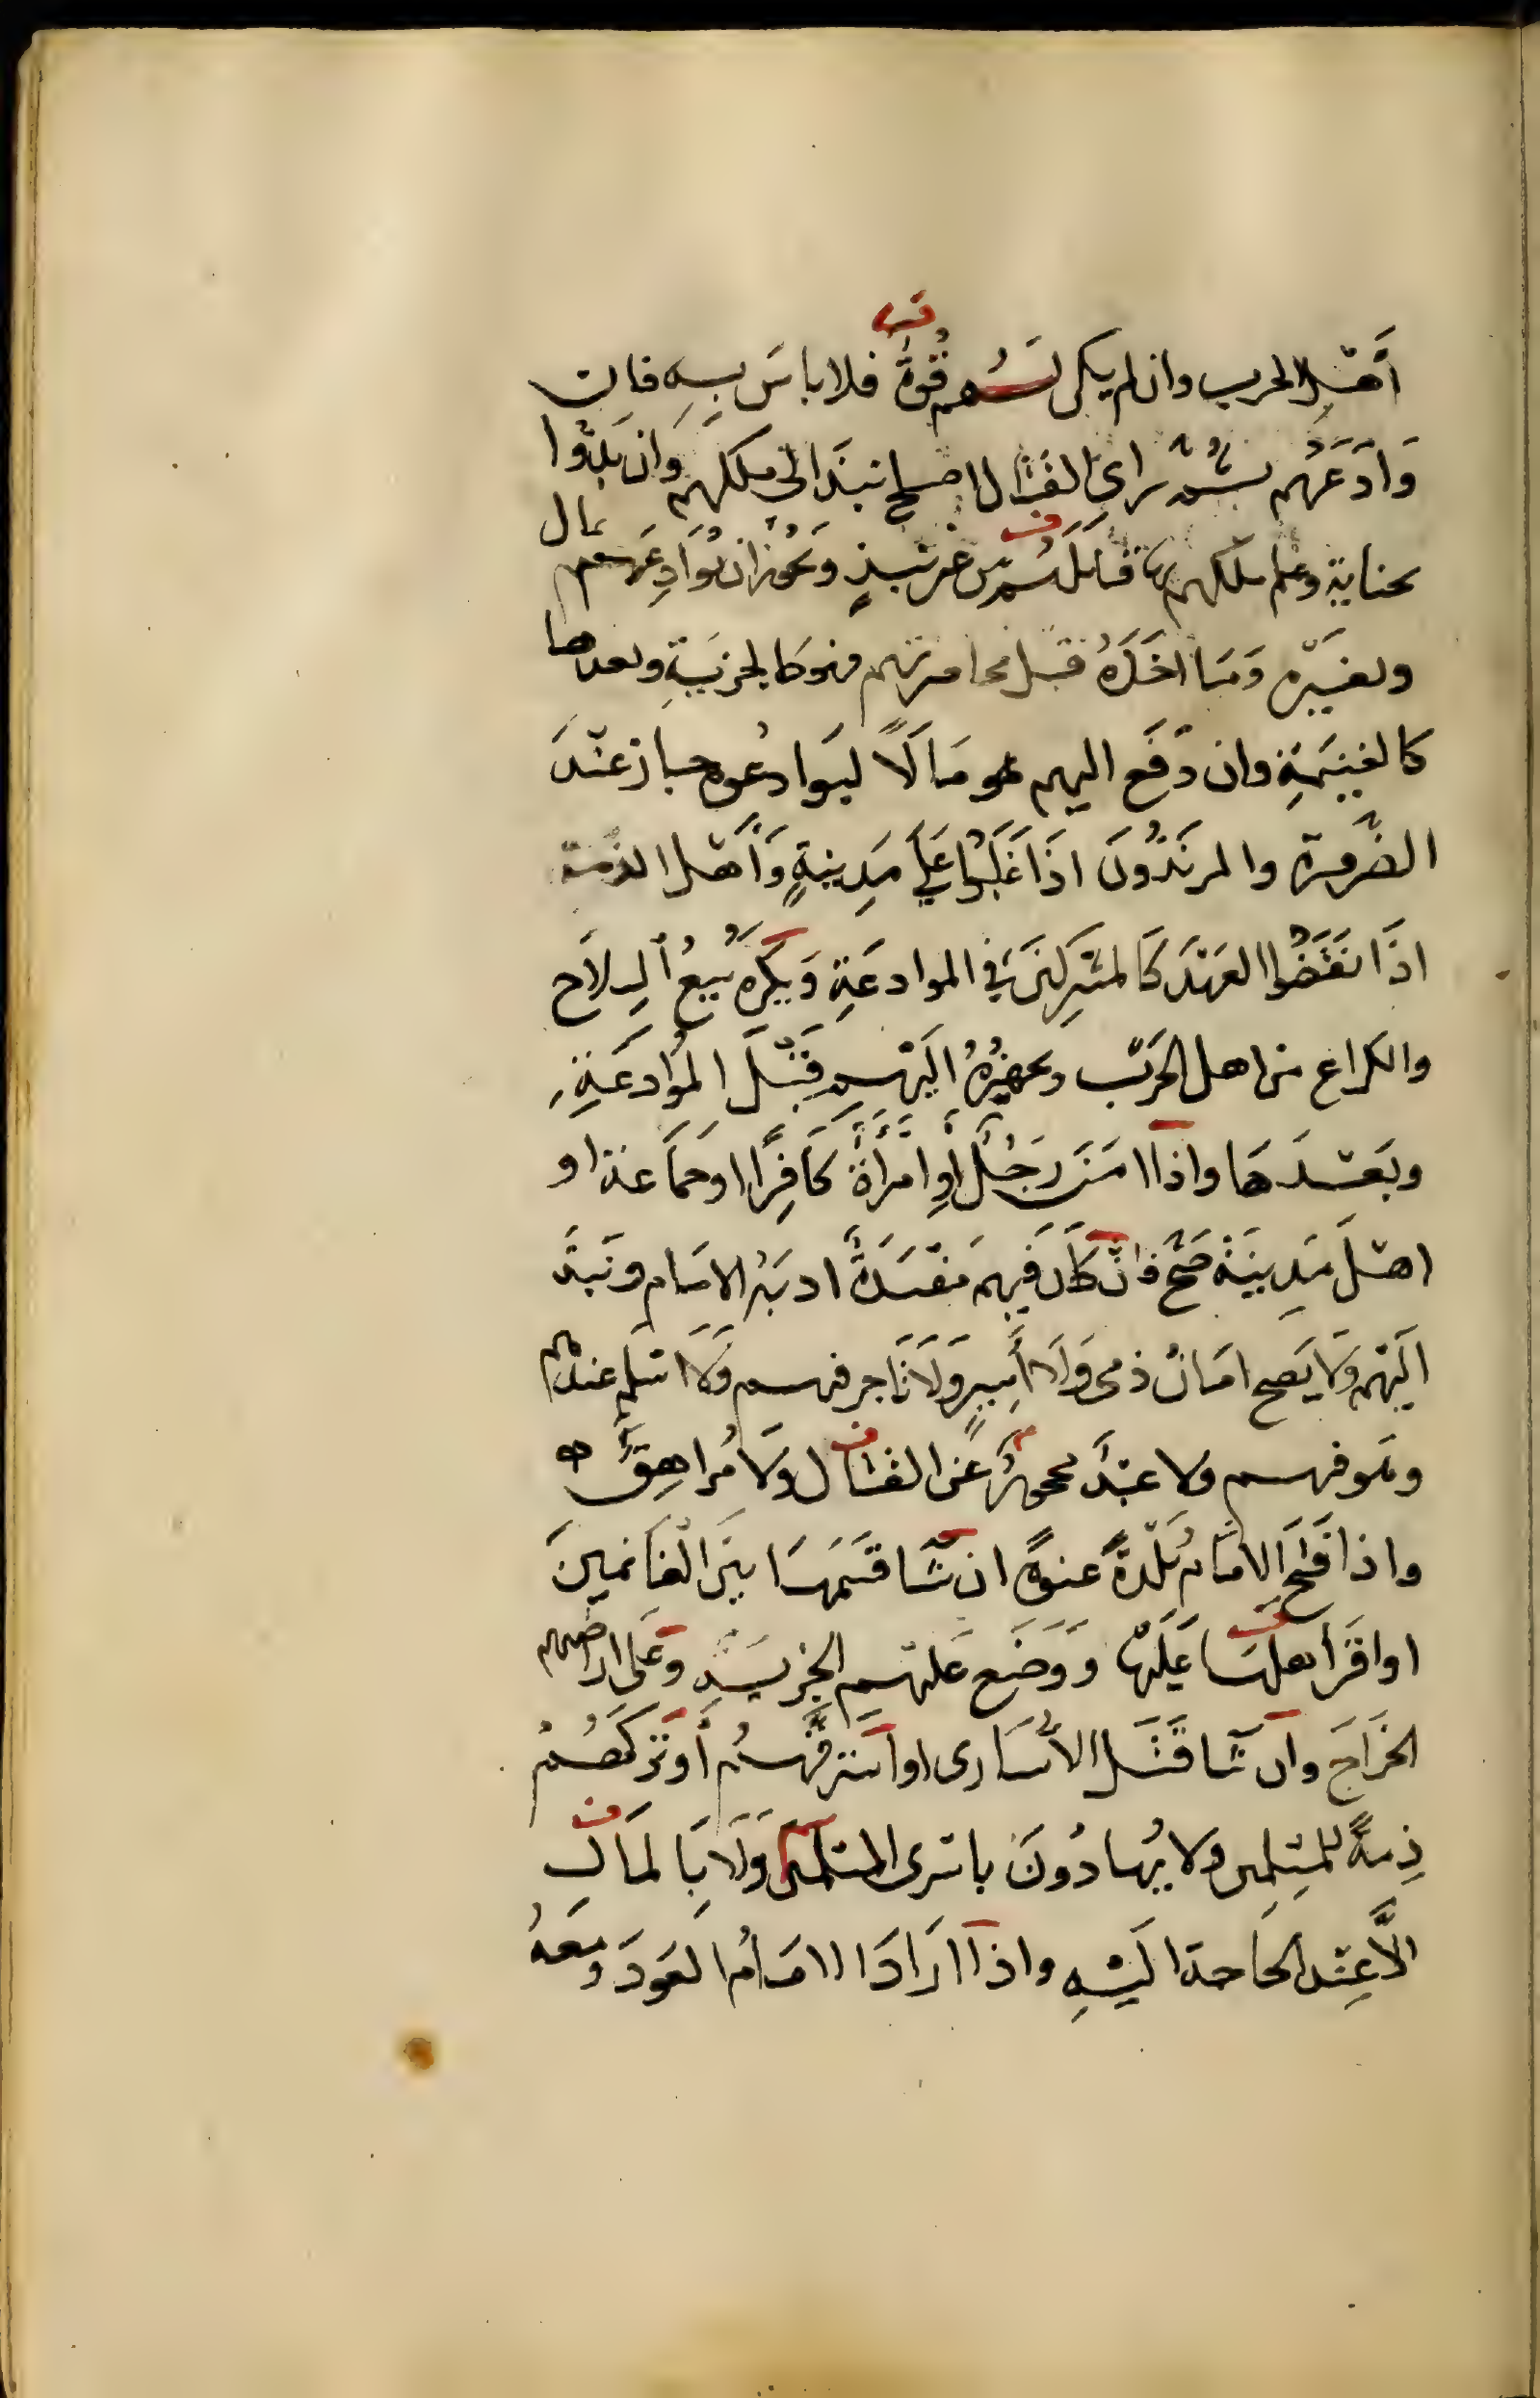 أهل الحرب وان لم يكن لهم قوة فلا باس به فان
وادعهم ثم راى القتال اصلح نبذ الى ملكهم وان بدوا
بخيانة وعلم ملكهم بها قاتلهم من غير نبذ ويجوز ان يوادعهم بمال
وبغيره وما اخذه قبل محاصرتهم فهو كالجزية وبعدها
كالغنيمة وان دفع اليهم مالا ليوادعوه جاز عند
الضرورة والمرتدون اذا غلبوا على مدينة وأهل الذمة
اذا نقضوا العهد كالمشركين في الموادعة ويكره بيع السلاح
والكراع من اهل الحرب وتجهيزه اليهم قبل الموادعة
وبعدها واذا امن رجل أو امرأة كافرا او جماعة او
اهل مدينة صح فان كان فيه مفسدة ادبه الامام ونبذ
اليهم ولا يصح امان ذمي ولا أسير ولا تاجر فيهم ولا من اسلم عندهم
وهو فيهم ولا عبد محجور عن القتال ولا مراهق
واذا فتح الامام بلدة عنوة ان شا قسمها بين الغانمين
او اقر أهلها عليها ووضع عليهم الجزية وعلى اراضيهم
الخراج وان شا قتل الأسارى او استرقهم أو تركهم
ذمة للمسلمين ولا يفادون باسرى المسلمين ولا بالمال
الا عند الحاجة اليه واذا اراد الامام العود ومعه